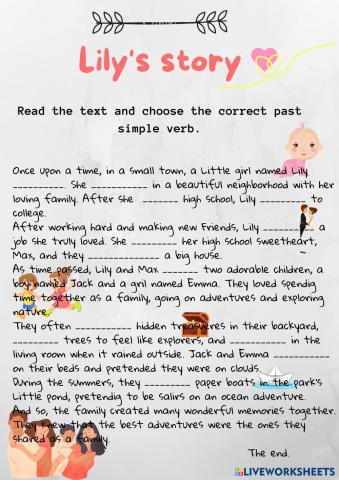 Lily's story
Read the text and choose the correct past
simple verb.
Once upon a time, in a small town, a Little girl named Lily
_________. She __________ in a beautiful neighborhood with her
loving family. After she _______ high school, Lily ________ to
college.
After working hard and making new Friends, Lily ________ a
job she truly loved. She ________ her high school sweetheart,
Max, and they _____________ a big house.
As time passed, Lily and Max ______ two adorable children, a
boy named Jack and a gril named Emma. They loved spendig
time together as a family, going on adventures and exploring
nature.
They often __________ hidden treasueres in their backyard,
________ trees to feel like explorers, and __________ in the
living room when it rained outside. Jack and Emma __________
on their beds and pretended they were on clouds.
During the summers, they ________ paper boats in the park's
Little pond, pretendig to be salirs on an ocean adventure.
And so, the family created many wonderful memories together.
They knew that the best adventures were the ones they
shared as a family.
The end.
LIVEWORKSHEETS